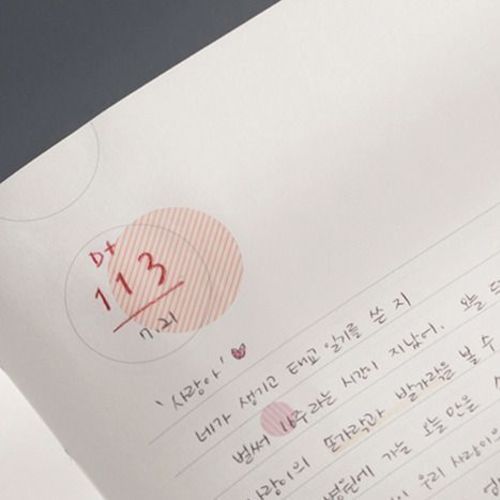 D+
113
7.21
'사랑아'
네가 생기고 태교일기를 쓴 지
벌써 16주라는 시간이 지났어. 오늘
사랑이의 손가락과 발가락을 볼 수
병원에 가는 오늘만을
우리 사랑이의